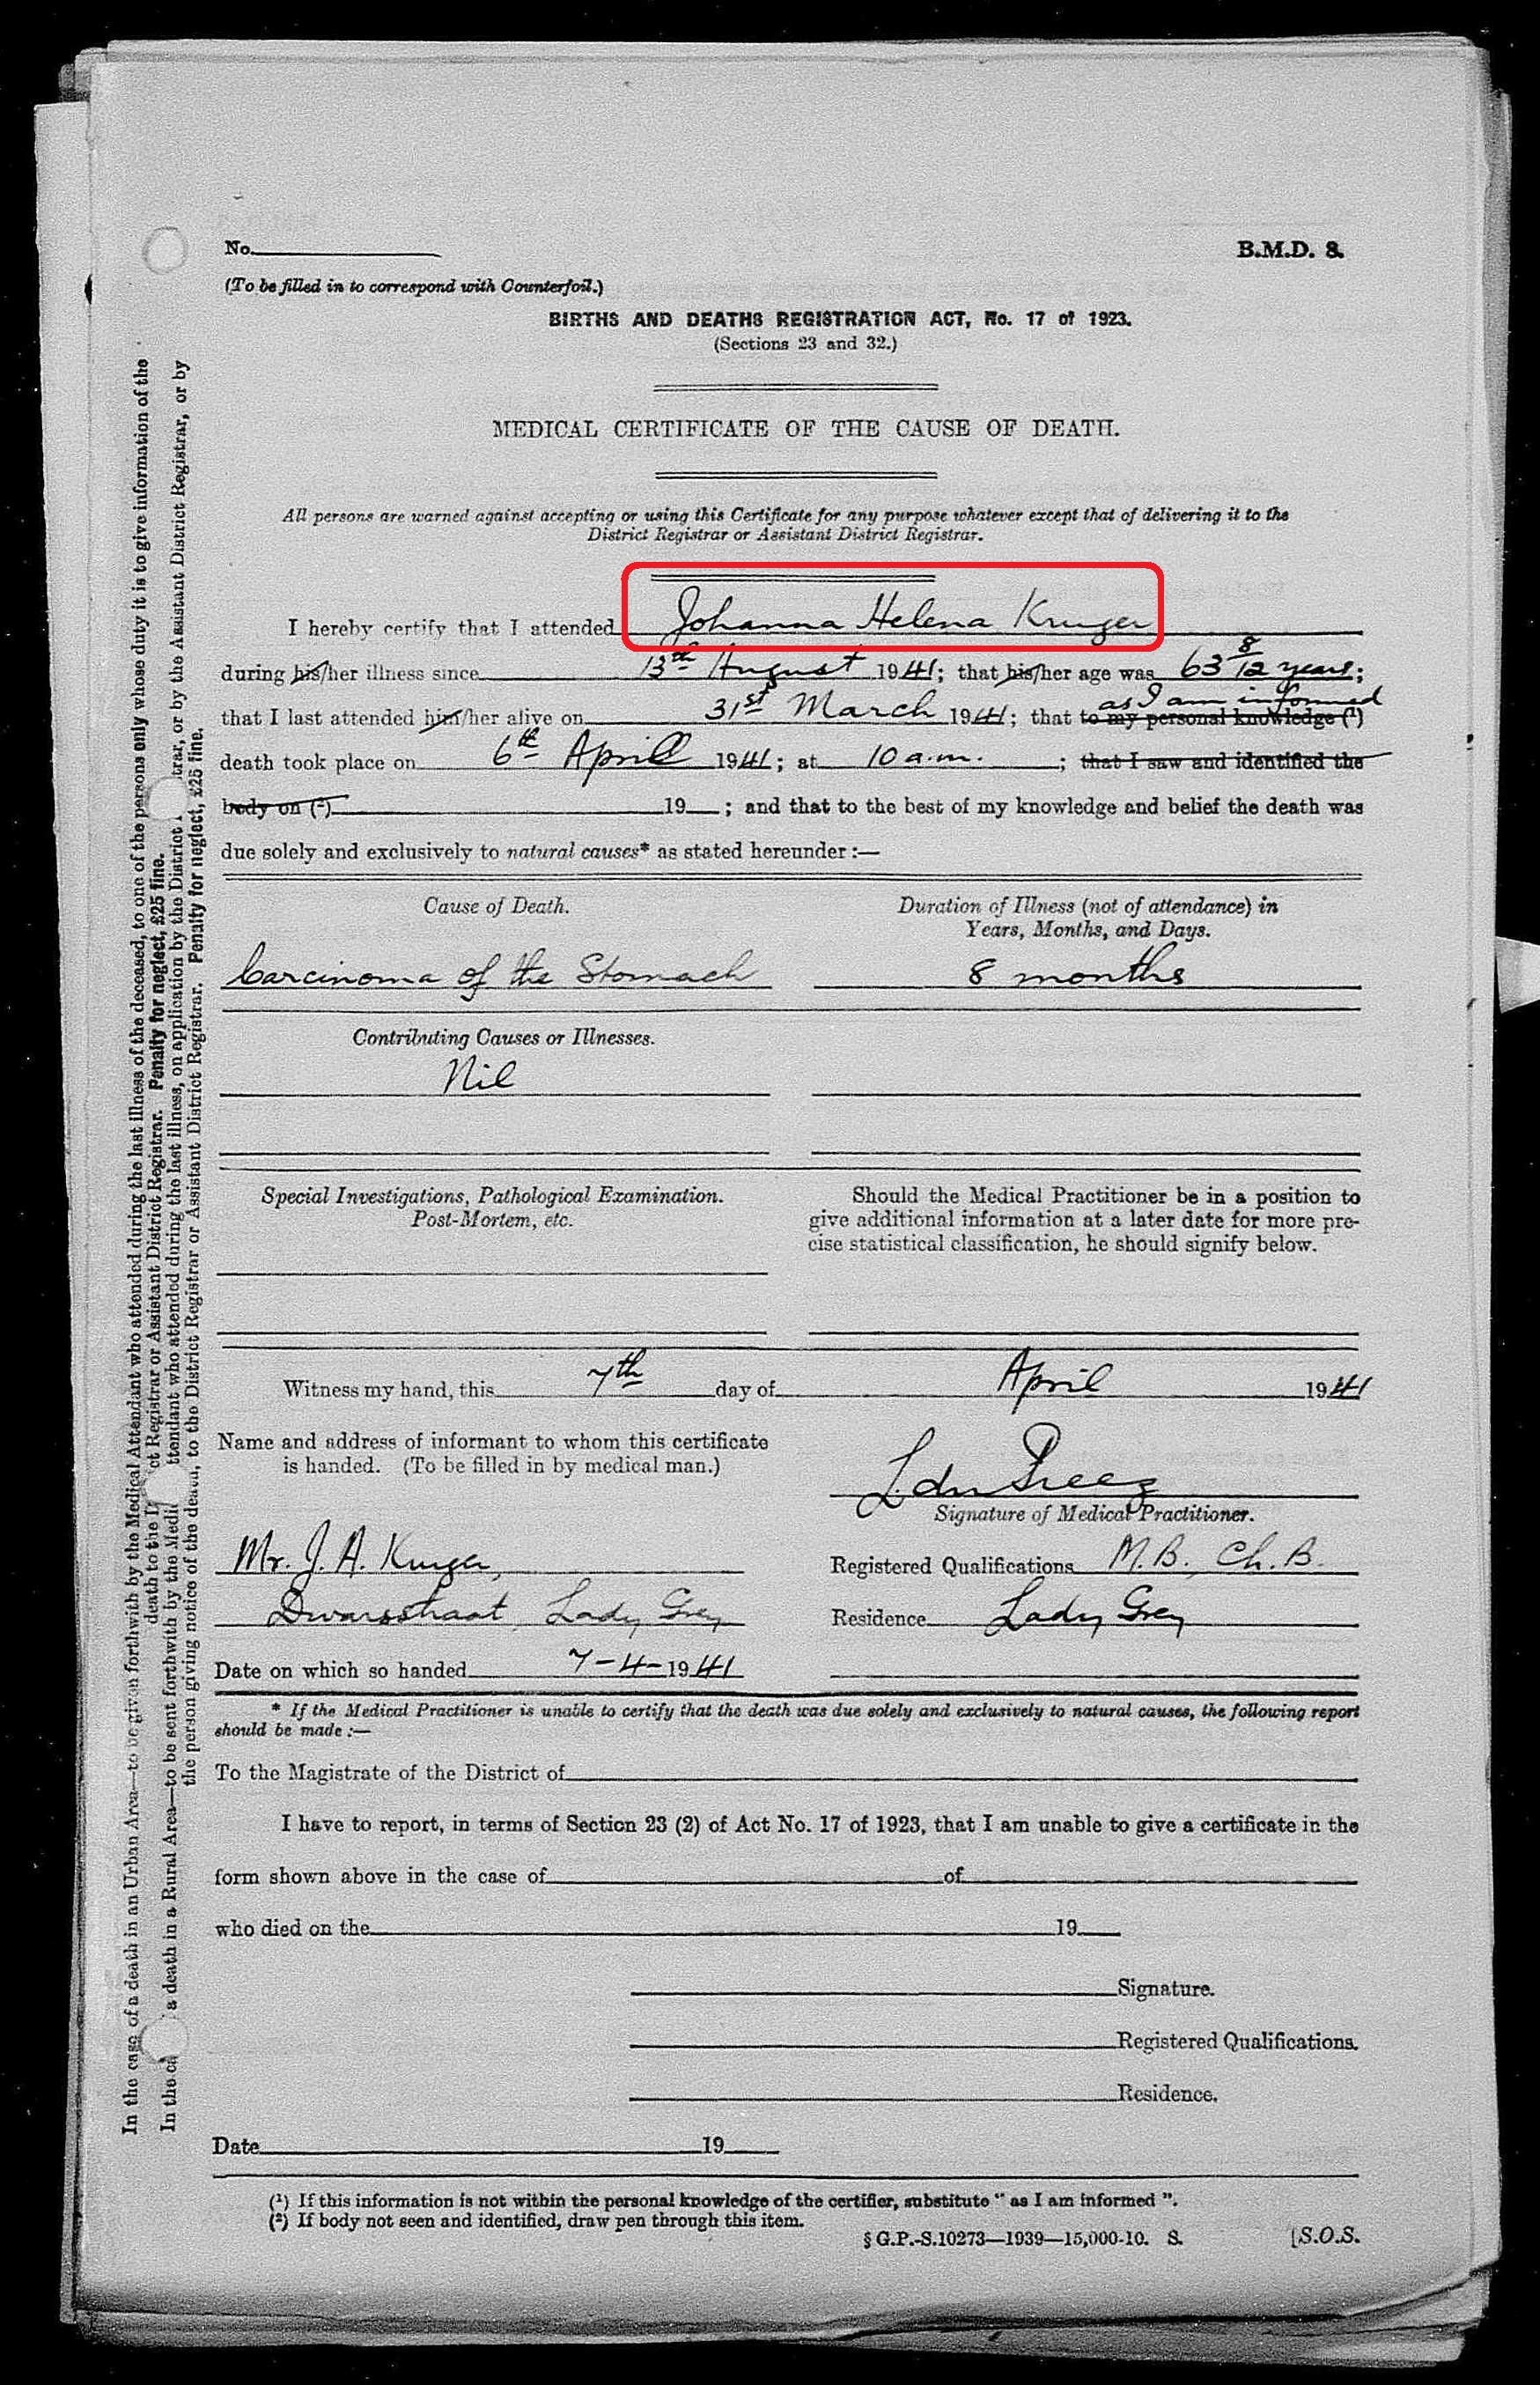 No.
B.M.D. 8.
(To be filled in to correspond with Counterfoil.)
BIRTHS AND DEATHS REGISTRATION ACT, No. 17 of 1923.
(Sections 23 and 32.)
MEDICAL CERTIFICATE OF THE CAUSE OF DEATH.
All persons are warned against accepting or using this Certificate for any purpose whatever except that of delivering it to the
District Registrar or Assistant District Registrar.
I hereby certify that I attended Johanna Helena Kruger
during his/her illness since 13th August 1941; that his/her age was 63 8/12 years;
as I am informed
that I last attended him/her alive on 31st March 1941; that to my personal knowledge (¹)
death took place on 6th April 1941; at 10 a.m. ; that I saw and identified the
body on (²) 19 ; and that to the best of my knowledge and belief the death was
due solely and exclusively to natural causes* as stated hereunder :—
Cause of Death.
Duration of Illness (not of attendance) in
Years, Months, and Days.
Carcinoma of the Stomach
8 months
Contributing Causes or Illnesses.
Nil
Special Investigations, Pathological Examination.
Post-Mortem, etc.
Should the Medical Practitioner be in a position to
give additional information at a later date for more pre-
cise statistical classification, he should signify below.
Witness my hand, this 7th day of April 1941
Name and address of informant to whom this certificate
is handed. (To be filled in by medical man.)
L. du Preez
Signature of Medical Practitioner.
Mr. J. A. Kruger,
Registered Qualifications M.B., Ch.B.
Dwarsstraat, Lady Grey
Residence Lady Grey
Date on which so handed 7-4-1941
* If the Medical Practitioner is unable to certify that the death was due solely and exclusively to natural causes, the following report
should be made :—
To the Magistrate of the District of
I have to report, in terms of Section 23 (2) of Act No. 17 of 1923, that I am unable to give a certificate in the
form shown above in the case of of
who died on the 19
Signature.
Registered Qualifications.
Residence.
Date 19
(¹) If this information is not within the personal knowledge of the certifier, substitute " as I am informed ".
(²) If body not seen and identified, draw pen through this item.
§ G.P.-S.10273—1939—15,000-10. S.
[S.O.S.
In the case of a death in an Urban Area—to be given forthwith by the Medical Attendant who attended during the last illness of the deceased, to one of the persons only whose duty it is to give information of the
death to the ct Registrar or Assistant District Registrar. Penalty for neglect, £25 fine.
In the ca a death in a Rural Area—to be sent forthwith by the Medi ttendant who attended during the last illness, on application by the District trar, or by the Assistant District Registrar, or by
the person giving notice of the death, to the District Registrar or Assistant District Registrar. Penalty for neglect, £25 fine.